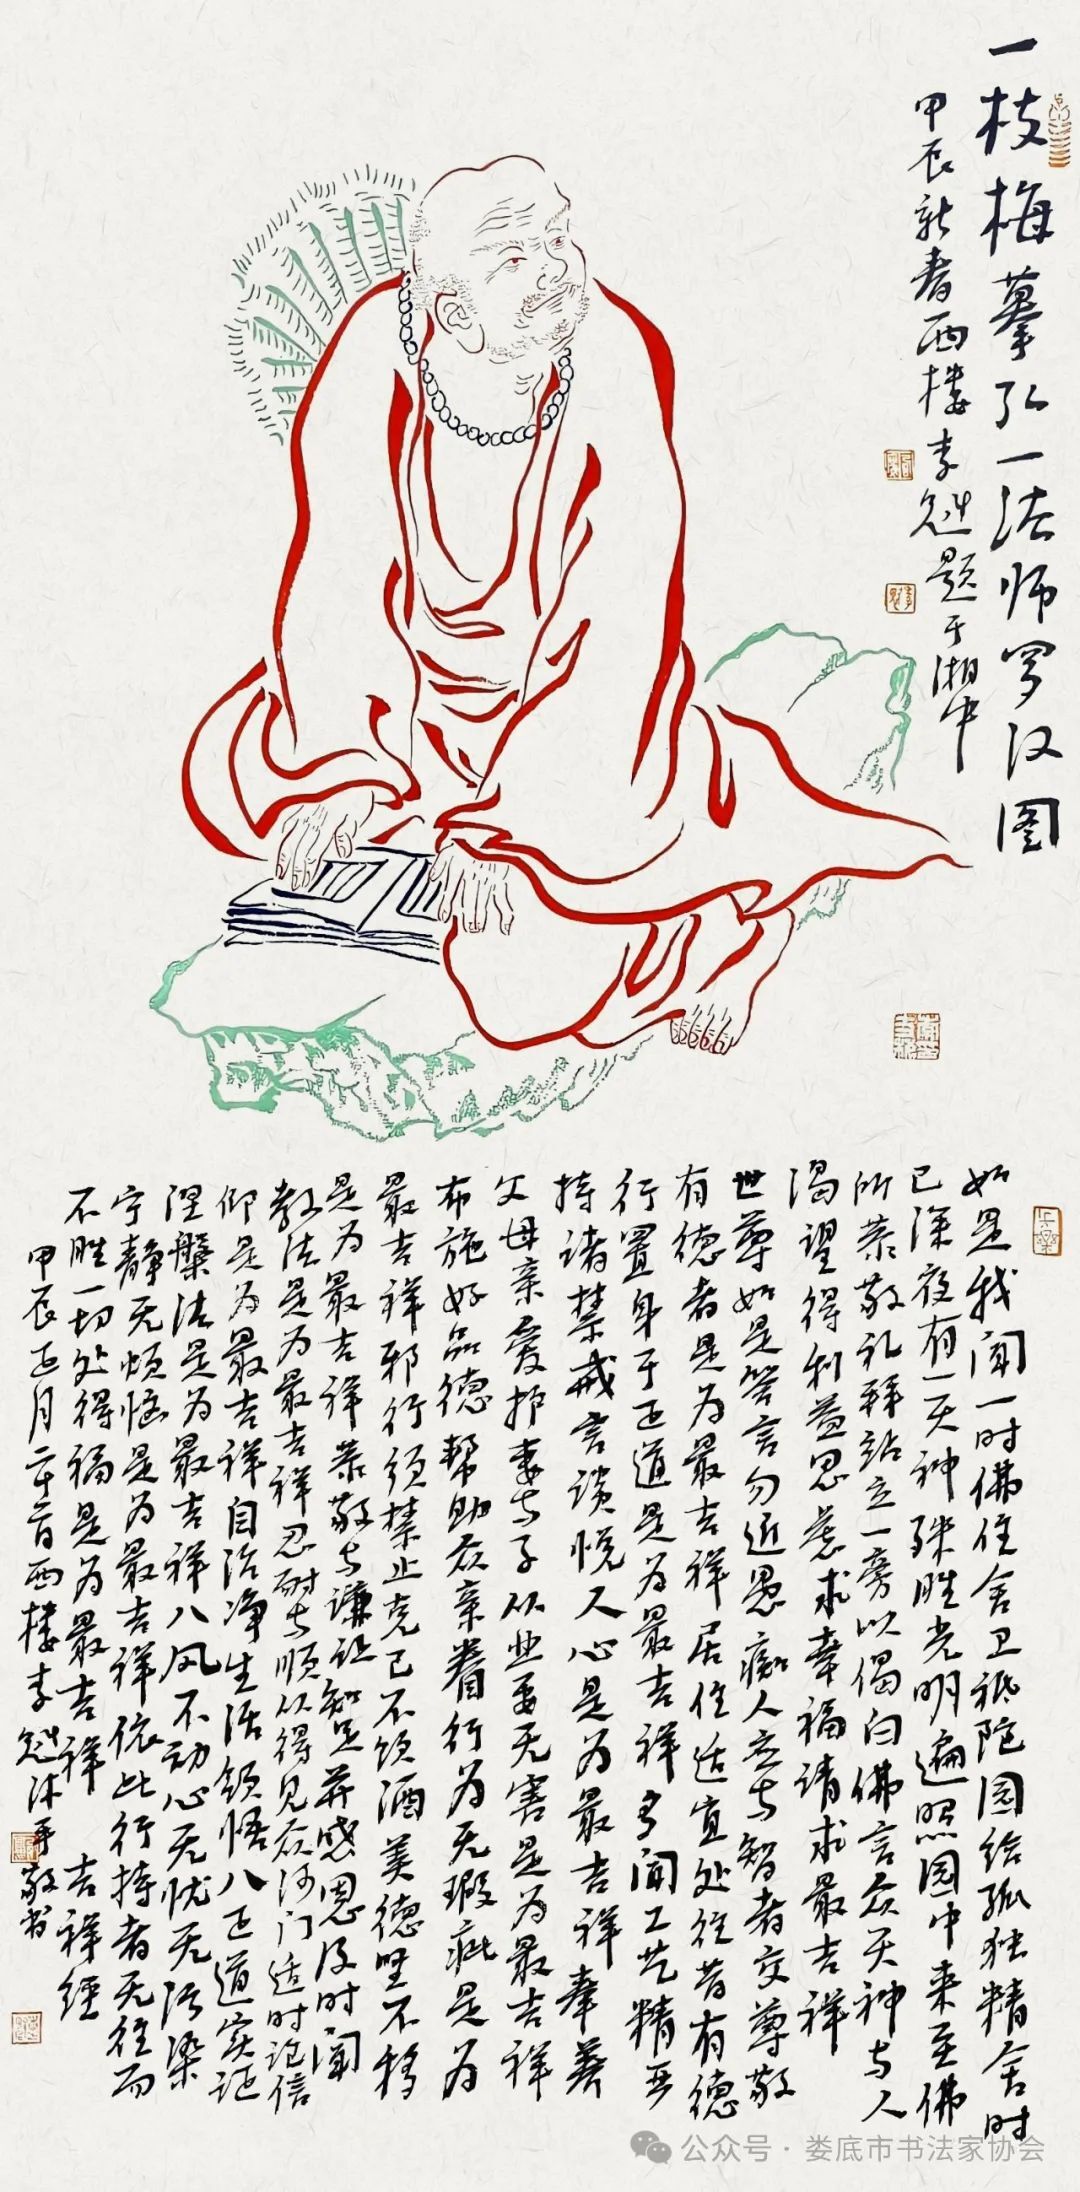 一枝梅摹弘一法师罗汉图
甲辰新春西楼李
题于湘中
如是我闻一时佛住舍卫祇陀园给孤独精舍时
已深夜有一天神殊胜光明遍照园中来至佛
所恭敬礼拜站立一旁以偈白佛言众天神与人
渴望得利益思虑求幸福请求最吉祥
世尊如是答言勿近愚痴人应与智者交尊敬
有德者是为最吉祥居住适宜处往昔有德
行置身于正道是为最吉祥多闻工艺精严
持诸禁戒言谈悦人心是为最吉祥奉养
父母亲爱护妻与子从业要无害是为最吉祥
布施好品德帮助众亲眷行为无瑕疵是为
最吉祥邪行须禁止克己不饮酒美德坚不移
是为最吉祥恭敬与谦让知足并感恩及时闻
教法是为最吉祥忍耐与顺从得见众沙门适时论信
仰是为最吉祥自治净生活领悟八正道实证
涅槃法是为最吉祥八风不动心无忧无污染
宁静无烦恼是为最吉祥依此行持者无往而
不胜一切处得福是为最吉祥 吉祥经
甲辰正月二十有西楼李
沐手敬书
公众号·娄底市书法家协会